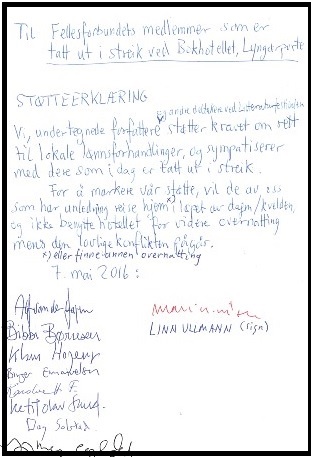 Til Fellesforbundets medlemmer som er
tatt ut i streik ved Bokhotellet, Lyngørporten
STØTTEERKLÆRING
x) og andre deltakere ved Litteraturfestivalen
Vi, undertegnede forfattere støtter kravet om rett
til lokale lønnsforhandlinger, og sympatiserer
med dere som i dag er tatt ut i streik.
For å markere vår støtte, vil de av oss
som har anledning reise hjem x) i løpet av dagen/kvelden,
og ikke benytte hotellet for videre overnatting
mens den lovlige konflikten pågår.
x) eller finne annen overnatting
7. mai 2016:
Bibbi Børresen
LINN ULLMANN (sign)
Klaus Hagerup
Ketil Olav
Dag Solstad